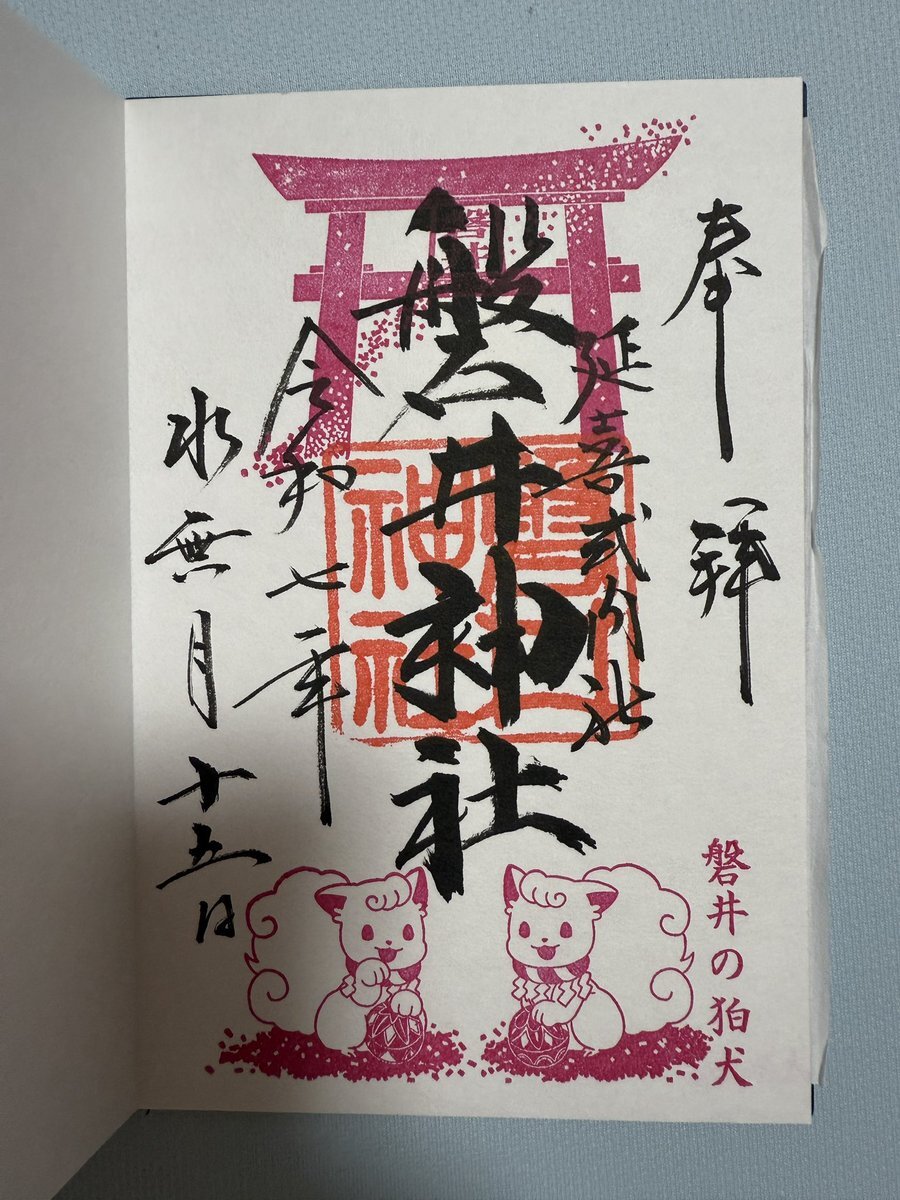 奉拝
延喜式内社
磐井神社
令和七年
水無月十五日
磐井の狛犬